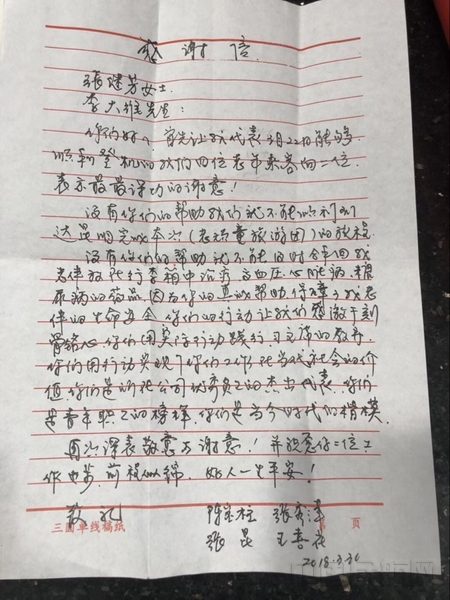 感谢信
张建芳女士
李大维先生：
你们好！首先让我代表3月22日能够
顺利登机的我们四位老年乘客向二位
表示最最诚功的谢意！
没有你们的帮助我们就不能顺利到
达昆明完成本次（老年童旅游团）的旅程
没有你们的帮助就不能及时拿回我
老伴放托行李箱中沉病高血压、心脏病、糖
尿病的药品因为你的真诚帮助保障了我老
伴的生命安全 你们的行动让我们感激于刻
骨铭心 你们用实际行动践行习主席的教养
你们用行动实现了你们工作在当代社会的价
值 你们是贵公司优秀员工的杰出代表 你们
是青年职工的榜样 你们是当今时代的楷模
再次深表敬意与谢意！并祝愿你二位工
作 进步、前程似锦 好人一生平安！
敬礼 陈宝柱 张秀
三圆单线稿纸 页
张昆 王喜花
2018.3.30